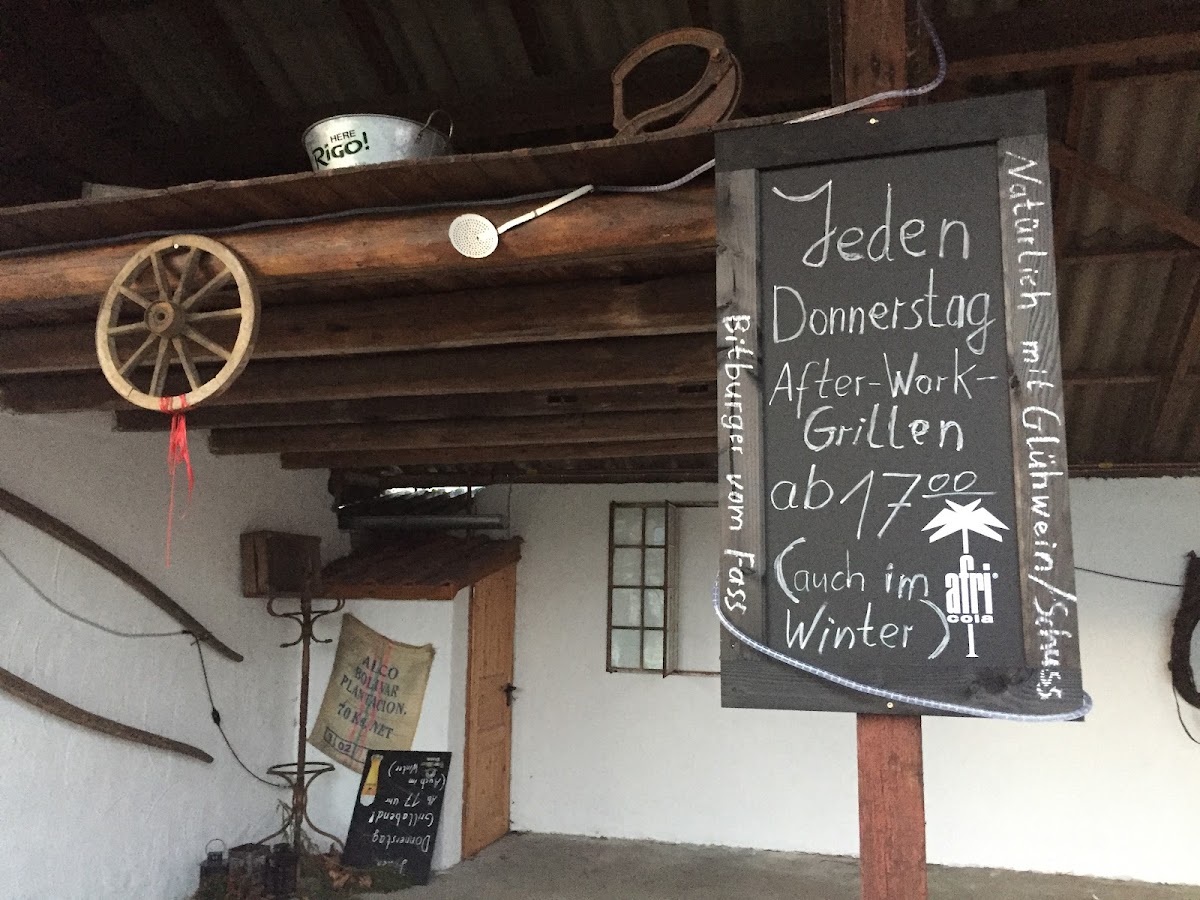 HERE
RIGO!
Jeden
Donnerstag
After-Work-
Grillen
ab 17 00
(auch im
Winter)
afri
cola
Bitburger vom Fass
Natürlich mit Glühwein/Schuss
ALCO
BOLIVAR
PLANTACION.
70 KL. NET
3102
Jeden
Donnerstag
Grillabend!
Ab 17 Uhr
(Auch im
Winter)